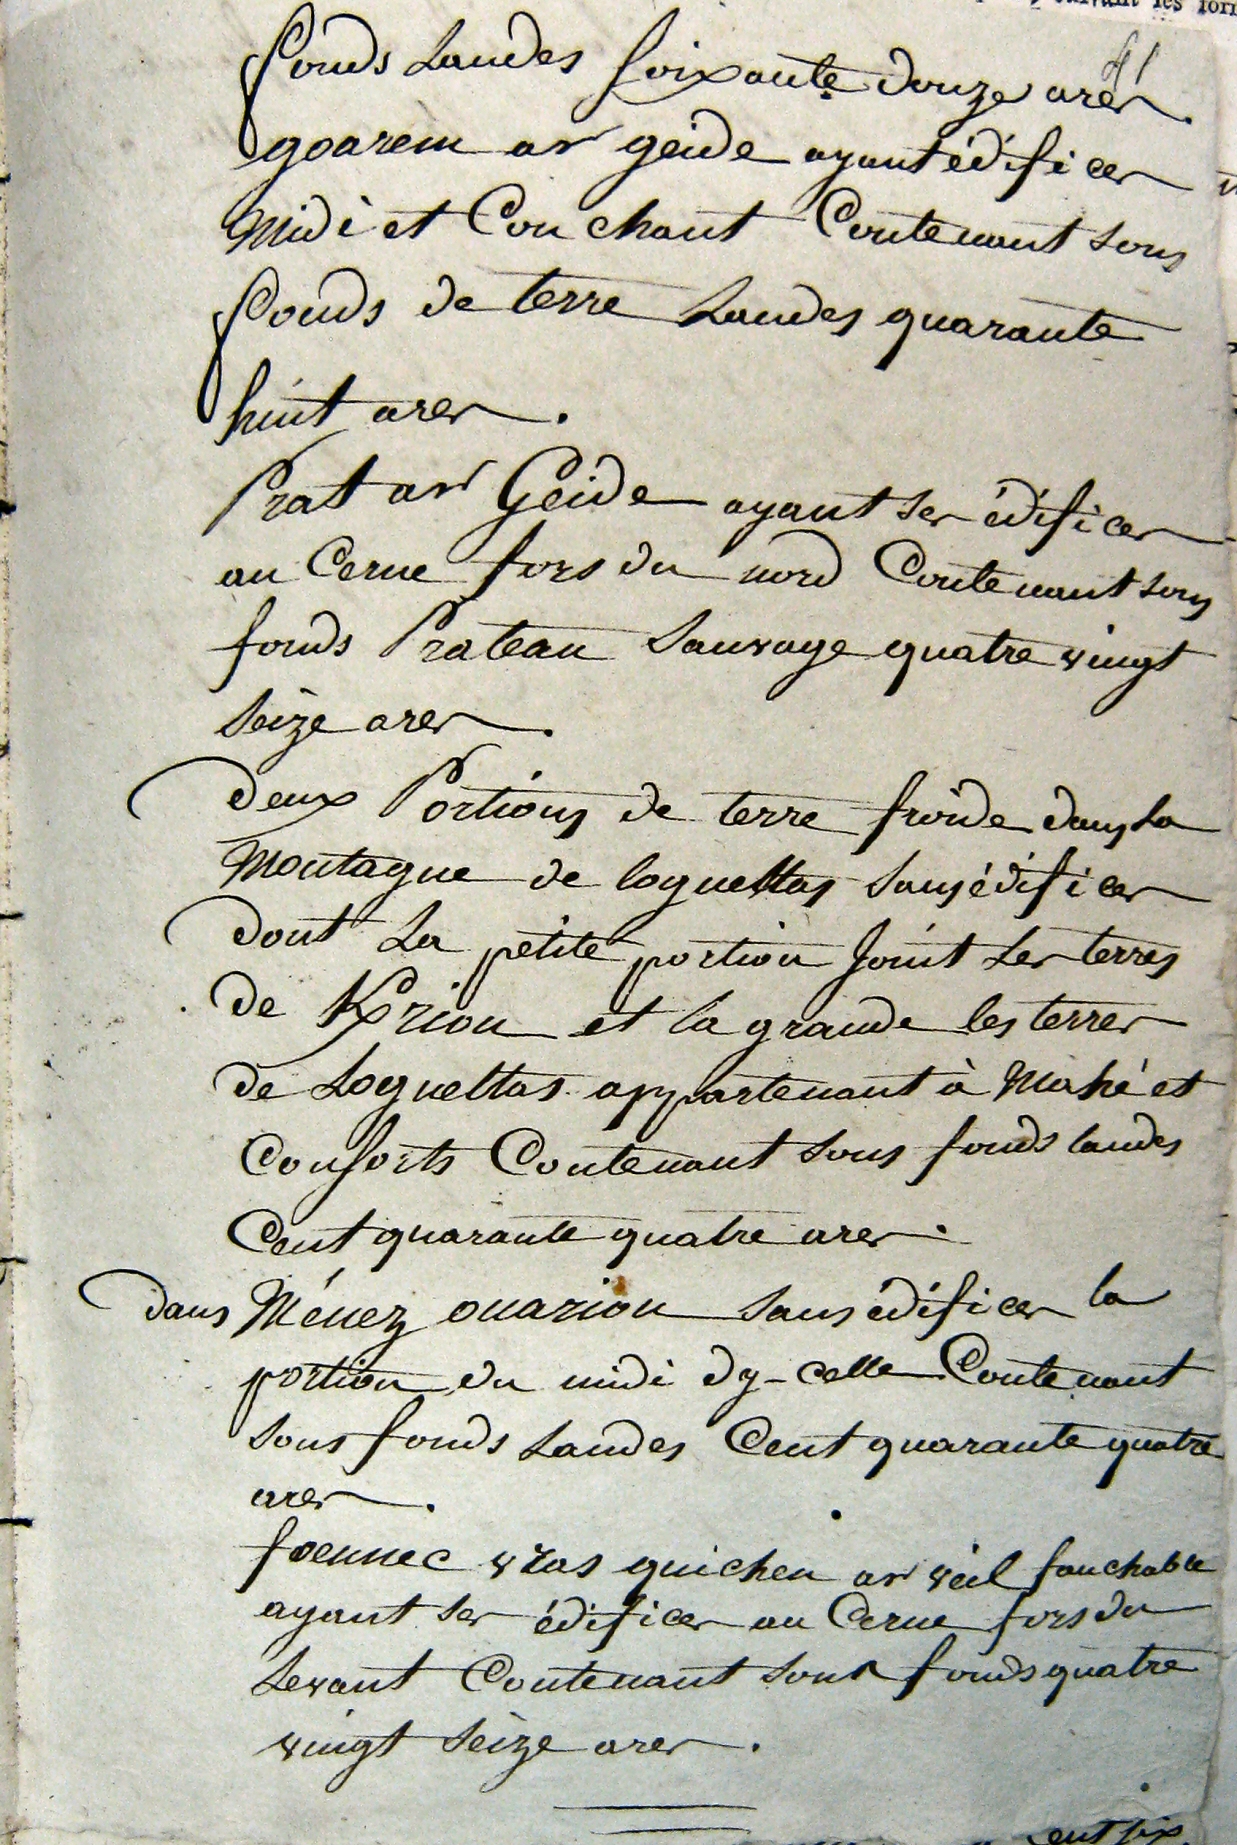 suivant les
41
fonds Landes soixante douze ares.
goarem ar geide ayant édifices
Midi et Couchant Contenant sous
fonds de terre Landes quarante
huit ares.
Prat ar Geide ayant ses édifices
au Cerne fors du nord Contenant sous
fonds Prateau Sauvage quatre vingt
Seize ares.
Deux Portions de terre froide dans La
Montagne de loguettas sans édifices
dont La petite portion Joint Les terres
de K/riou et la grande les terres
de Loguettas appartenant à Mahé et
Consorts Contenant sous fonds landes
Cent quarante quatre ares.
Dans Ménez ouariou sans édifices la
portion du midi dy-celle Contenant
sous fonds Landes Cent quarante quatre
ares.
foennec vras quichen ar veil fauchable
ayant ses édifices au Cerne fors du
Levant Contenant sous fonds quatre
vingt Seize ares.